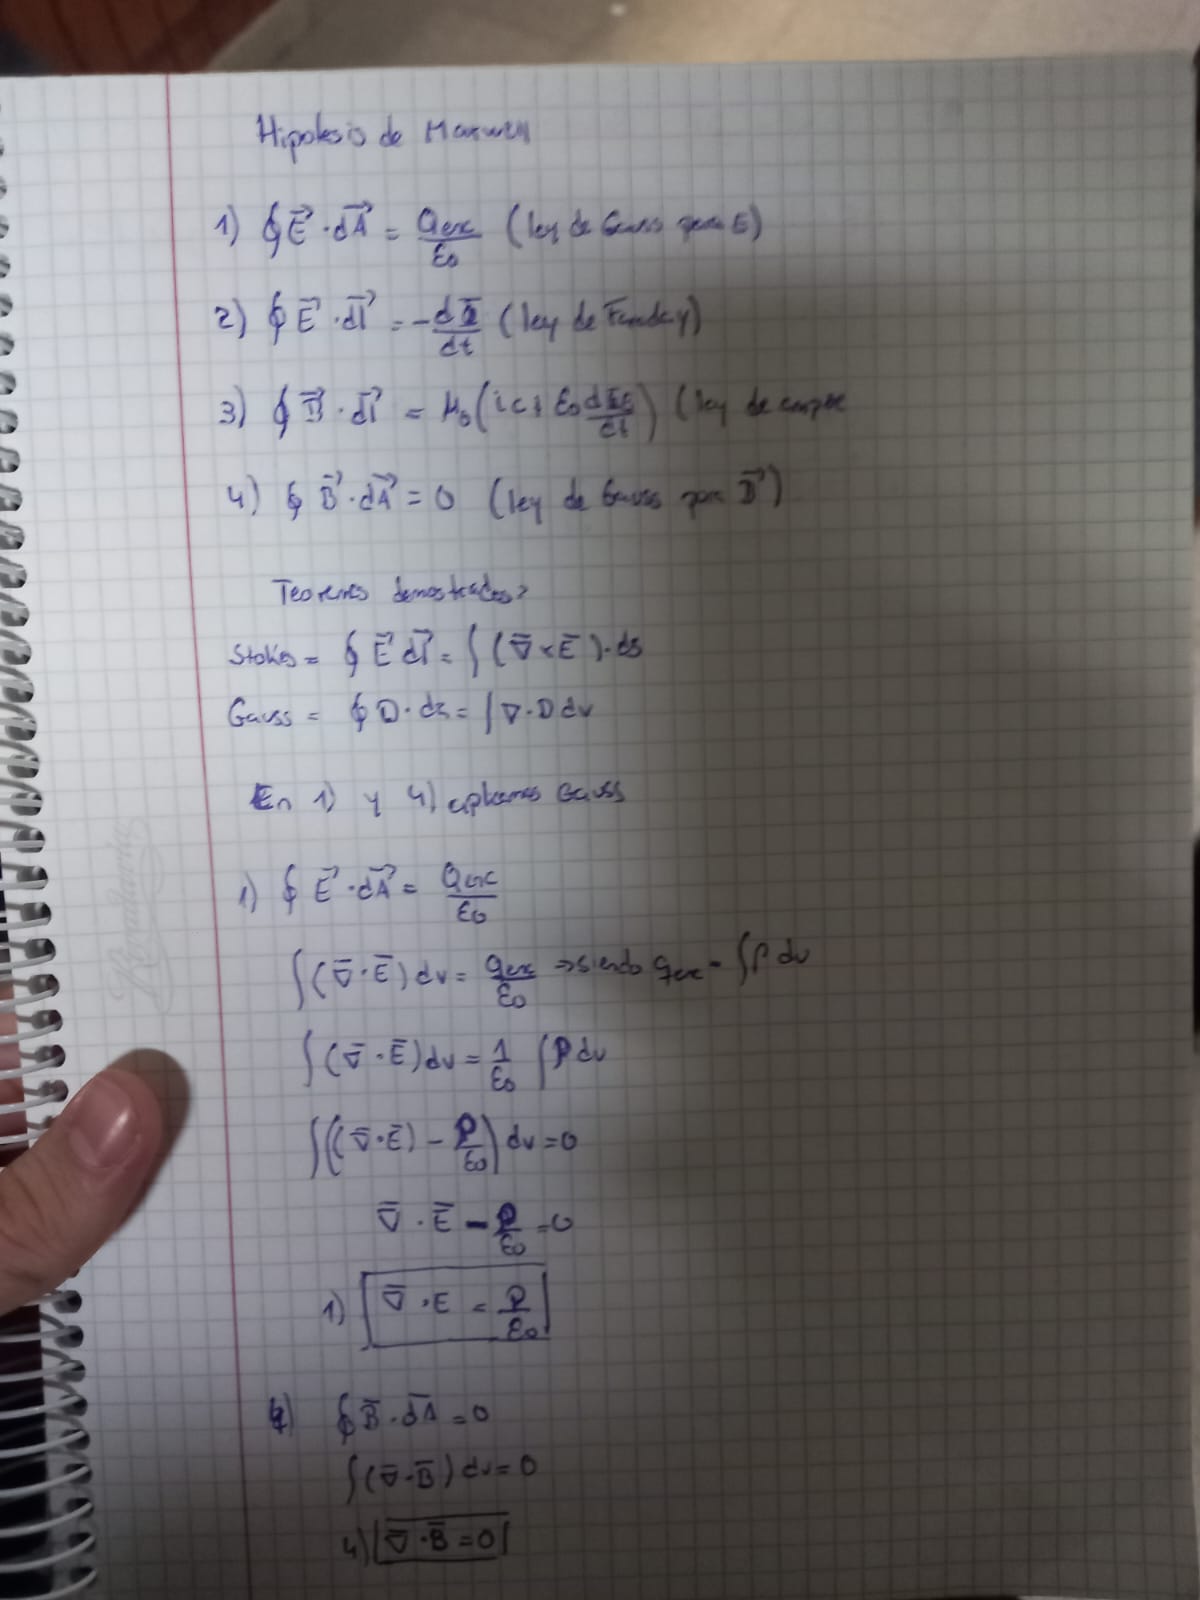 Hipotesis de Maxwell
1) ∮ E⃗ · dA⃗ = Qenc/ε0 (ley de Gauss para E)
2) ∮ E⃗ · dl⃗ = - dΦ/dt (ley de Faraday)
3) ∮ B⃗ · dl⃗ = μ0 (ic + ε0 dΦE/dt) (ley de ampere
4) ∮ B⃗ · dA⃗ = 0 (ley de Gauss para B⃗)
Teoremas demostrados:
Stokes = ∮ E⃗ dl⃗ = ∫ (∇̄ × Ē) · ds
Gauss = ∮ D · ds = ∫ ∇ · D dv
En 1) y 4) aplicamos Gauss
1) ∮ E⃗ · dA⃗ = Qenc/ε0
∫ (∇̄ · Ē) dv = qenc/ε0 => siendo qenc = ∫ρ dv
∫ (∇̄ · Ē) dv = 1/ε0 ∫ρ dv
∫ ((∇̄ · Ē) - ρ/ε0) dv = 0
∇̄ · Ē - ρ/ε0 = 0
1) ∇̄ · E = ρ/ε0
4) ∮ B̄ · dĀ = 0
∫ (∇̄ · B̄) dv = 0
4) ∇̄ · B̄ = 0